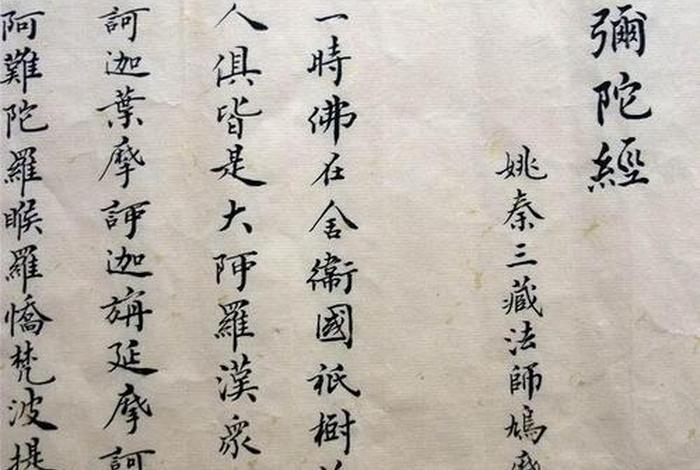 彌陀經
姚秦三藏法師鳩
一時佛在舍衛國祇樹
人俱皆是大阿羅漢眾
訶迦葉摩訶迦旃延摩訶
阿難陀羅睺羅憍梵波提